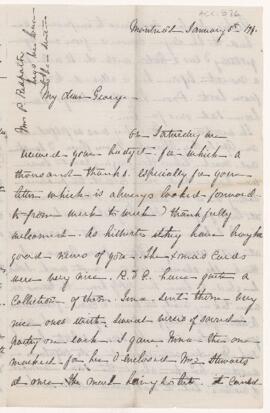 ACC. 576
Montreal January 8th
Mr P. Redpath
My dear George
On Saturday we
received your budget for which a
thousand thanks especially for your
letter which is always looked forward
to from week to week & thankfully
welcomed. As hitherto they have brought
good news of you. The Xmas Cards
were very nice. R. & P. have quite a
collection of them. Lina sent them very
nice ones with several verses of sacred
poetry on each. I gave the one
marked for her & enclosed Mrs Stewarts
at once the moral being to